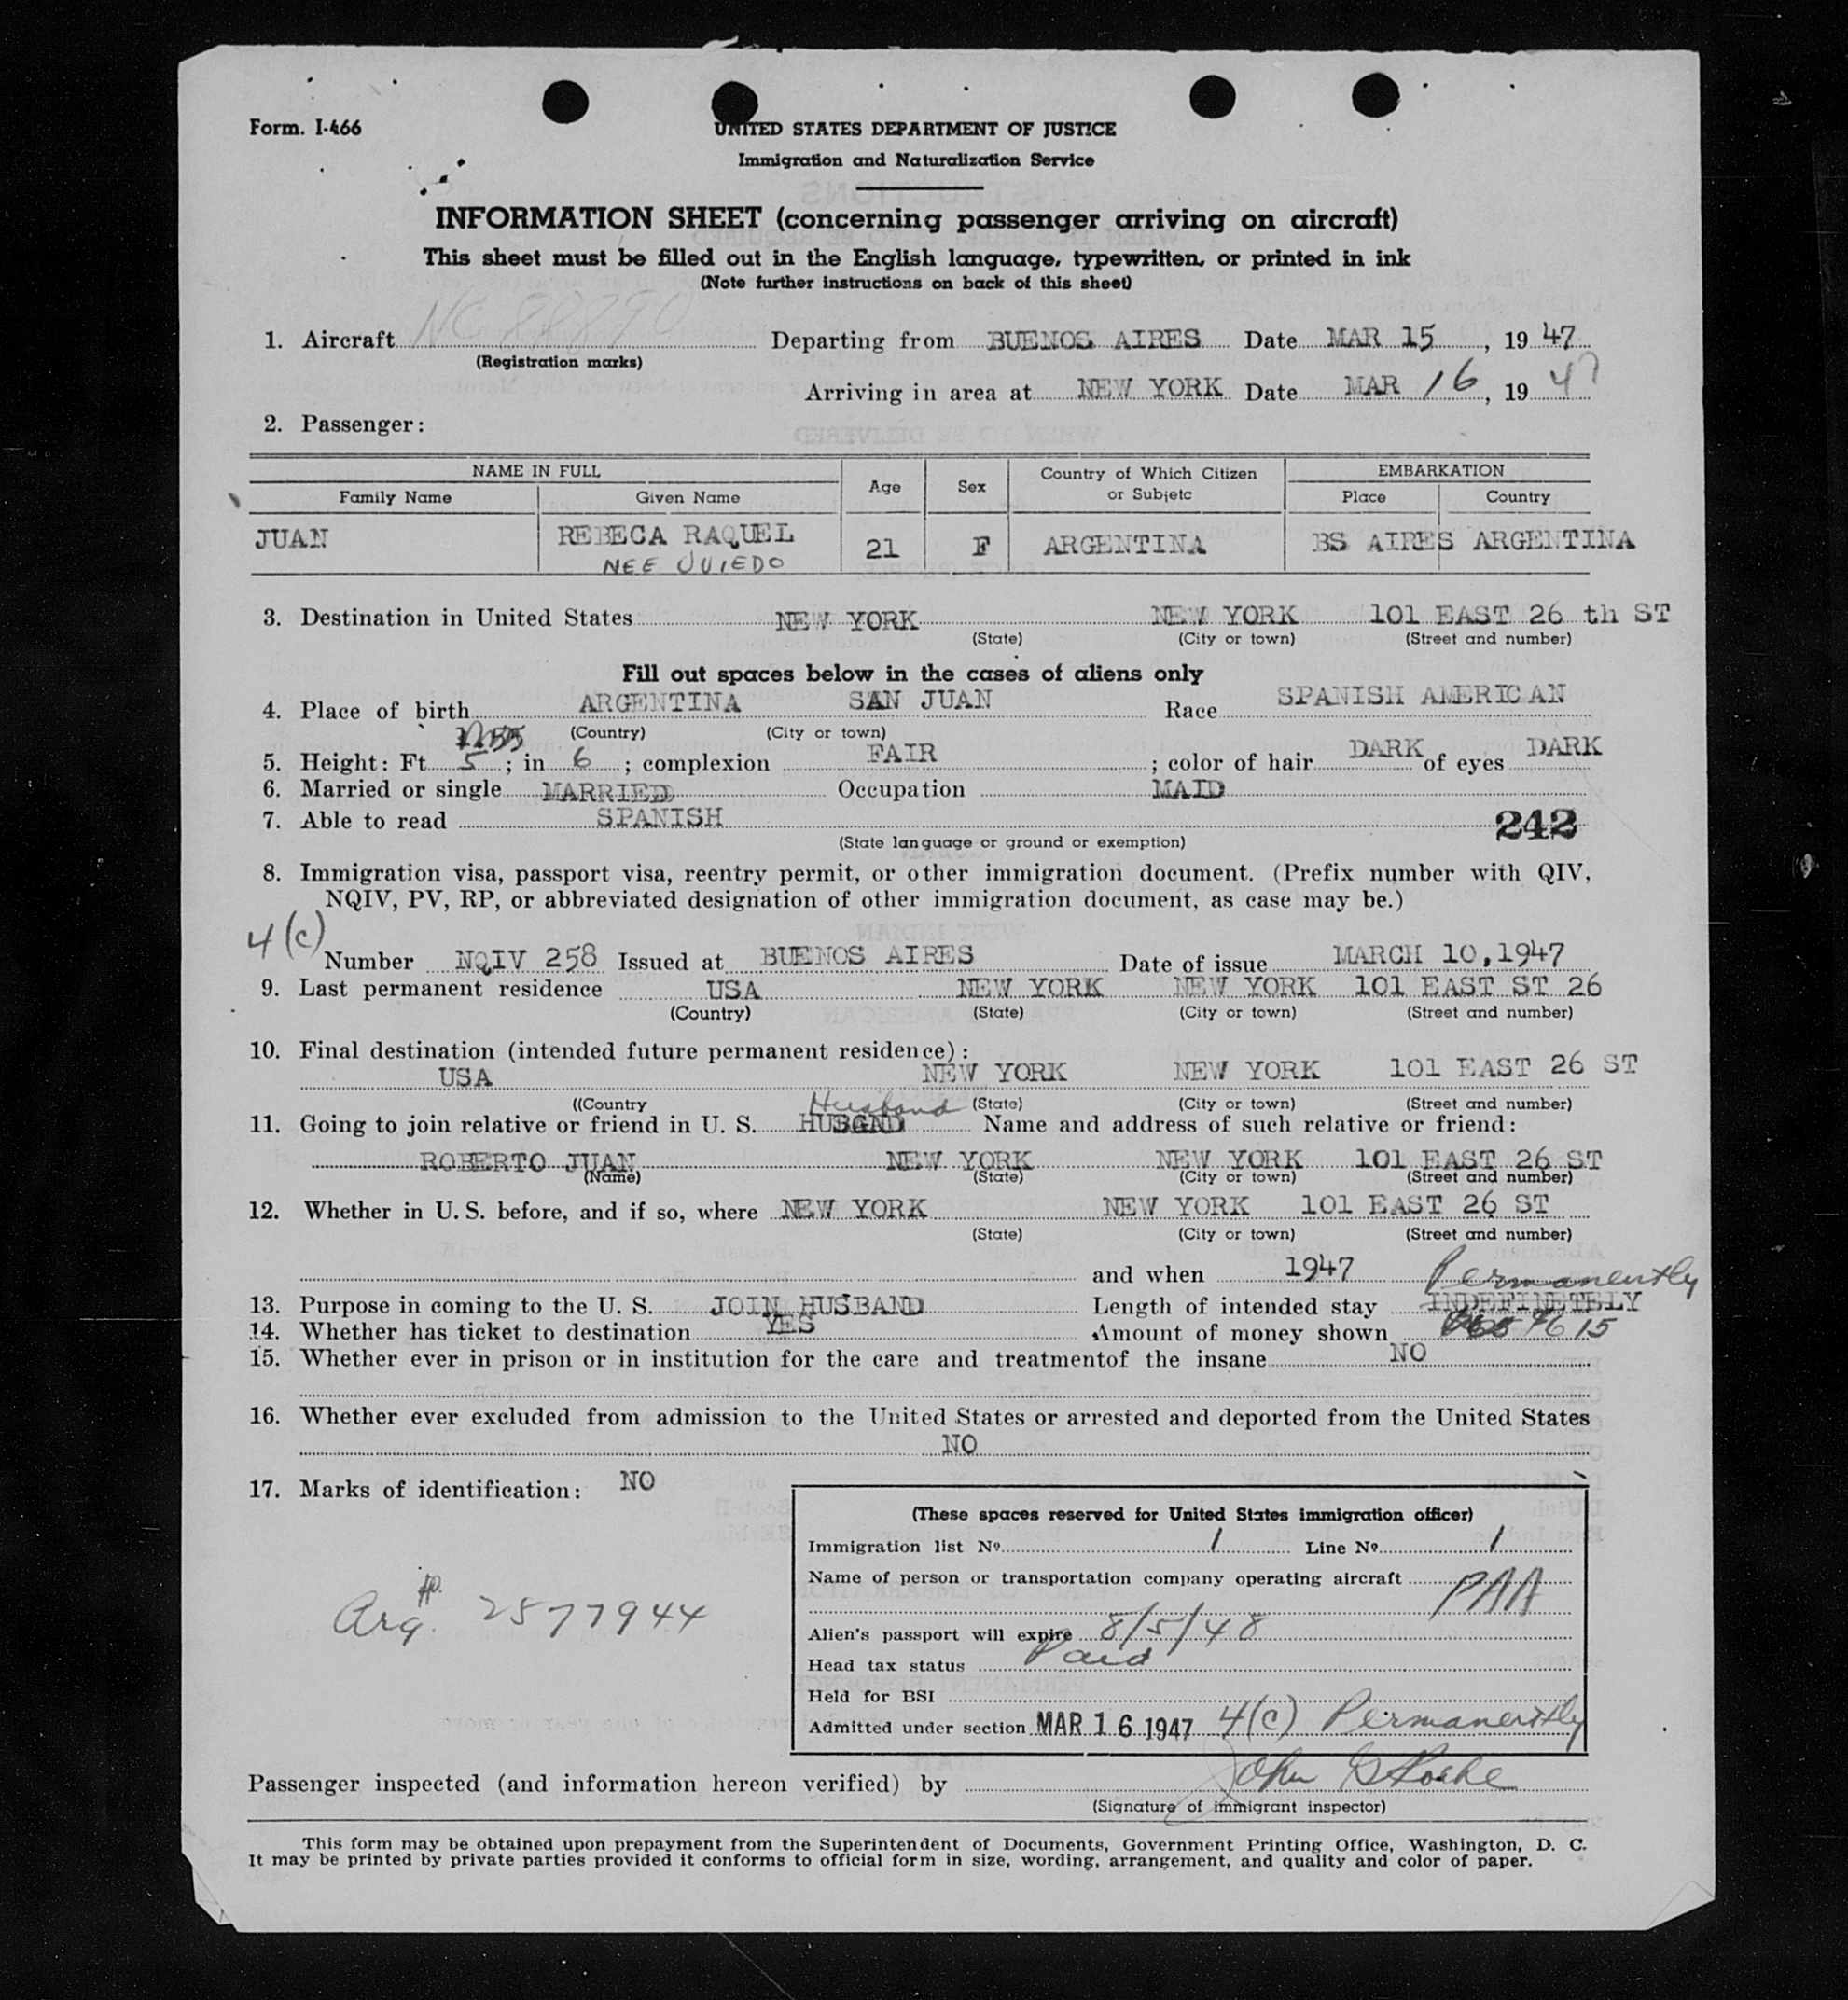 Form. I-466
UNITED STATES DEPARTMENT OF JUSTICE
Immigration and Naturalization Service
INFORMATION SHEET (concerning passenger arriving on aircraft)
This sheet must be filled out in the English language, typewritten, or printed in ink
(Note further instructions on back of this sheet)
1. Aircraft NC 88890 Departing from BUENOS AIRES Date MAR 15, 1947
(Registration marks)
Arriving in area at NEW YORK Date MAR 16, 1947
2. Passenger:
NAME IN FULL Age Sex Country of Which Citizen or Subjetc EMBARKATION
Family Name Given Name Place Country
JUAN REBECA RAQUEL 21 F ARGENTINA BS AIRES ARGENTINA
NEE OVIEDO
3. Destination in United States NEW YORK NEW YORK 101 EAST 26 th ST
(State) (City or town) (Street and number)
Fill out spaces below in the cases of aliens only
4. Place of birth ARGENTINA SAN JUAN Race SPANISH AMERICAN
(Country) (City or town)
5. Height: Ft 5; in 6; complexion FAIR; color of hair DARK of eyes DARK
6. Married or single MARRIED Occupation MAID
7. Able to read SPANISH 242
(State language or ground or exemption)
8. Immigration visa, passport visa, reentry permit, or other immigration document. (Prefix number with QIV,
NQIV, PV, RP, or abbreviated designation of other immigration document, as case may be.)
4(c)
Number NQIV 258 Issued at BUENOS AIRES Date of issue MARCH 10,1947
9. Last permanent residence USA NEW YORK NEW YORK 101 EAST ST 26
(Country) (State) (City or town) (Street and number)
10. Final destination (intended future permanent residence):
USA NEW YORK NEW YORK 101 EAST 26 ST
((Country (State) (City or town) (Street and number)
Husband
11. Going to join relative or friend in U. S. Name and address of such relative or friend:
ROBERTO JUAN NEW YORK NEW YORK 101 EAST 26 ST
(Name) (State) (City or town) (Street and number)
12. Whether in U. S. before, and if so, where NEW YORK NEW YORK 101 EAST 26 ST
(State) (City or town) (Street and number)
and when 1947 Permanently
13. Purpose in coming to the U. S. JOIN HUSBAND Length of intended stay INDEFINETELY
14. Whether has ticket to destination YES Amount of money shown 15
15. Whether ever in prison or in institution for the care and treatmentof the insane NO
16. Whether ever excluded from admission to the United States or arrested and deported from the United States
NO
17. Marks of identification: NO
(These spaces reserved for United States immigration officer)
Immigration list Nº 1 Line Nº 1
Name of person or transportation company operating aircraft PAA
Arg. 2577944
Alien's passport will expire 8/5/48
Head tax status Paid
Held for BSI
Admitted under section MAR 16 1947 4(c) Permanently
Passenger inspected (and information hereon verified) by John
(Signature of immigrant inspector)
This form may be obtained upon prepayment from the Superintendent of Documents, Government Printing Office, Washington, D. C.
It may be printed by private parties provided it conforms to official form in size, wording, arrangement, and quality and color of paper.